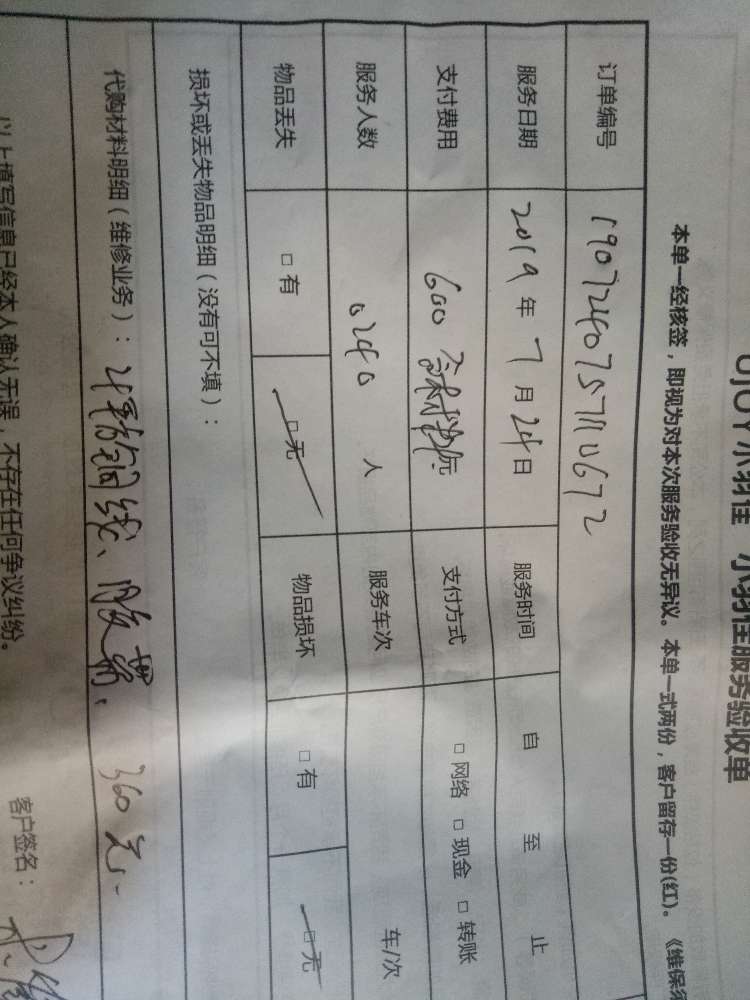 UJOY小羽佳 小羽佳服务验收单
本单一经核签，即视为对本次服务验收无异议。本单一式两份，客户留存一份(红)。《维保须
订单编号
服务日期 2019年7月24日 服务时间 自 至 止
支付费用 600 含材料 支付方式 □网络 □现金 □转账
服务人数 人 服务车次 车/次
物品丢失 □有 □无 物品损坏 □有 □无
损坏或丢失物品明细（没有可不填）：
代购材料明细（维修业务）： 360元
以上填写信息已经本人确认无误，不存在任何争议纠纷。
客户签名：